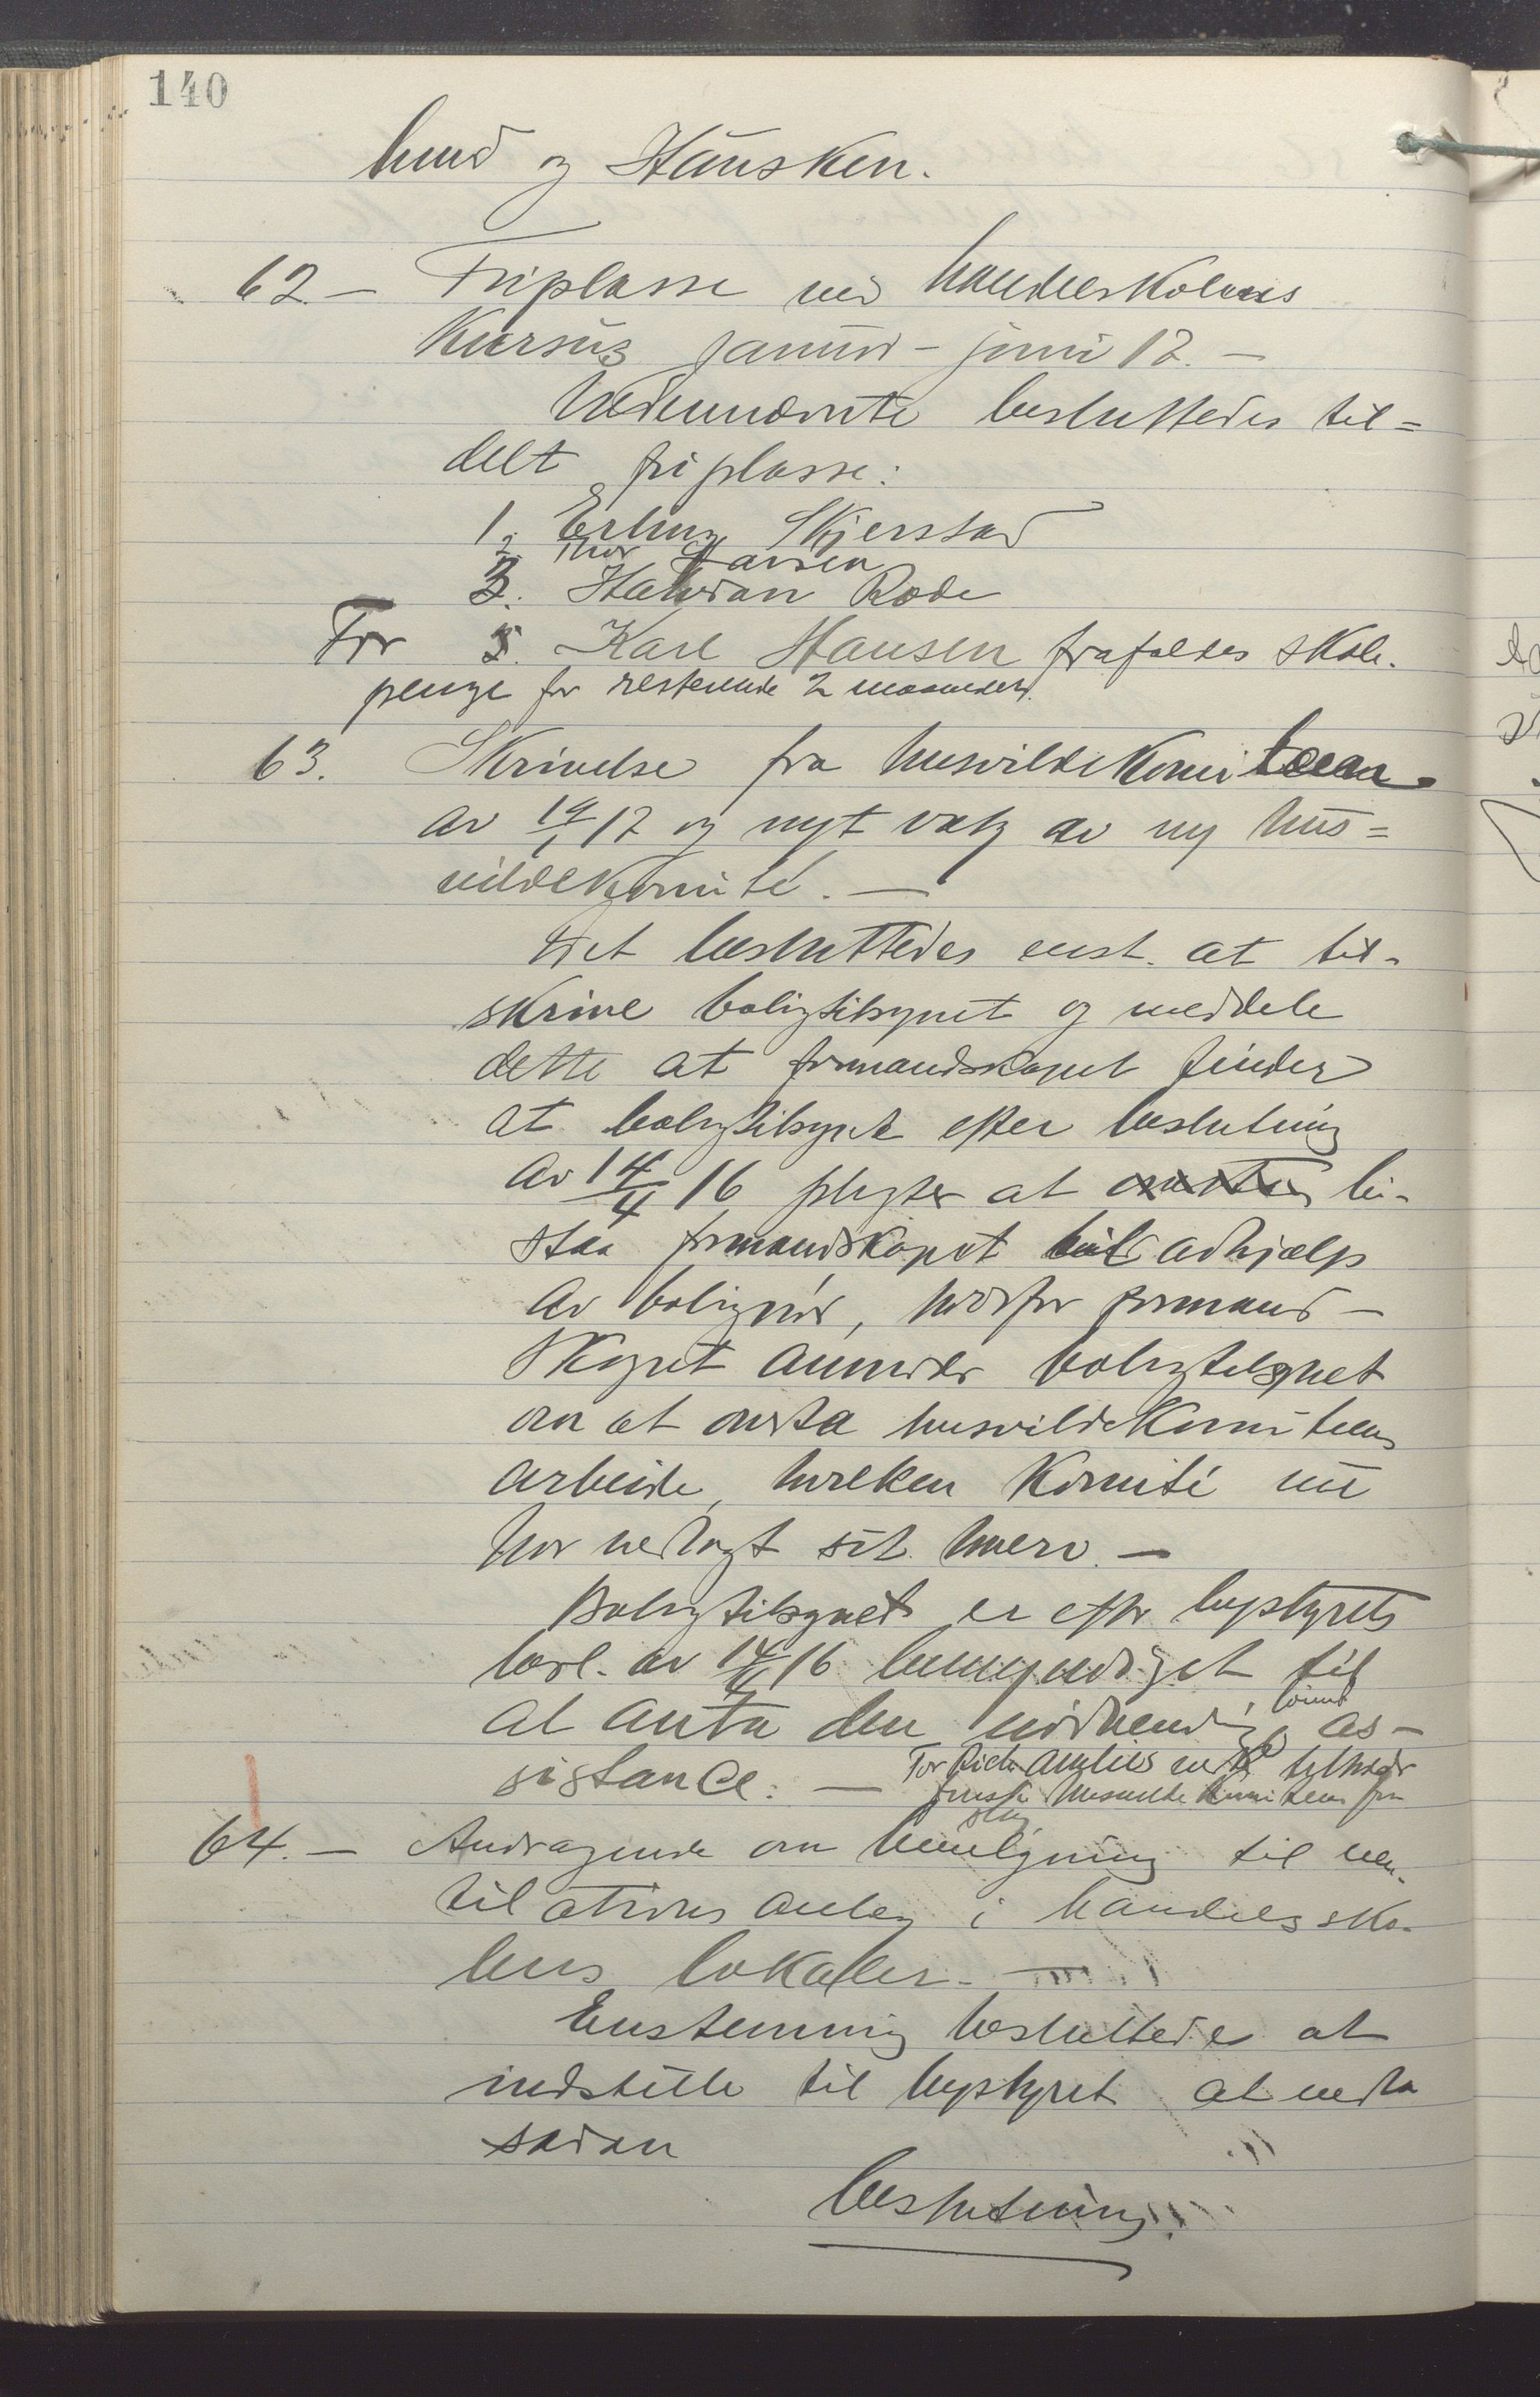 140
lund og Hausken.
62.- Friplasse ved handelsskolens
kursus januar - juni 17. -
Nedennævnte besluttedes til=
delt friplasse:
1. Erling Skjerstad
2. Thor Larsen
3. Halvdan Rode
For 5. Karl Hansen frafaldes skole-
penge for resterende 2 maaneder.
63. Skrivelse fra husvildekomiteen
av 19/1 17 og nyt valg av ny hus=
vildekomité. -
Det besluttedes enst. at til-
skrive boligtilsynet og meddele
dette at formandskapet finder
at boligtilsynet efter beslutning
av 14/4 16 pligter at bi-
staa formandskapet til avhjælp
av bolignød, hvorfor formand-
skapet anmoder boligtilsynet
om at overta husvildekomiteens
arbeide, hvilken komité nu
har nedlagt sit hverv. -
Boligtilsynet er efter bystyrets
besl. av 14/4 16 bemyndiget til
at anta den nødvendige, lønnet as-
sistance. -
husvildekomiteens for
slag
64. - Andragende om bevilgning til ven-
tilationsanlæg i handelssko-
lens lokaler. -
Enstemmig besluttedes at
indstille til bystyret at vedta
sådan
beslutning.